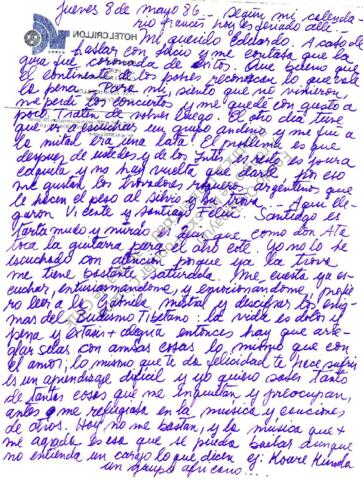 HOTEL CRILLON
Jueves 8 de mayo 86. Según mi calenda-
rio francés hoy es feriado allá.
Mi querido Eduardo. Acabo de
hablar con Lucio y me contaba que la
gira fue coronada de éxitos. Qué bueno que
el continente de los pobres reconozca lo que vale
la pena. Para mí, siento que no vinieron,
me perdí los conciertos y me quedé con gusto a
poco. Traten de volver luego. El otro día tuve
que ir a escuchar un grupo andino y me fui a
la mitad era una lata. El problema es que
después de ustedes y de los Intis, el resto es pura
caquita y no hay vuelta que darle por eso
me gustan los trovadores argentinos que
le hacen el peso al Silvio y su trova. Aquí lle-
garon Vicente y Santiago Feliú. Santiago es
tartamudo y zurdo igual que como don Ata
toca la guitarra para el otro lado. Yo no lo he
escuchado con atención porque ya la trova
me tiene bastante saturada. Me cuesta ya es-
cuchar, entusiasmándome, y emocionándome, prefie-
ro leer a la Gabriela Mistral y descifrar los enig-
mas del Budismo Tibetano: la vida es dolor y
pena y éxtasis + alegría entonces hay que arre-
glárselas con ambas cosas lo mismo que con
el amor; lo mismo que te da felicidad te hace sufrir
es un aprendizaje difícil y yo quiero saber tanto
de tantas cosas que me inquietan y preocupan,
antes me refugiaba en la música y canciones
de otros. Hoy no me bastan, y la música que +
me agrada es esa que se pueda bailar aunque
no entienda un carajo lo que dicen ej: Touré Kunda
un grupo africano....